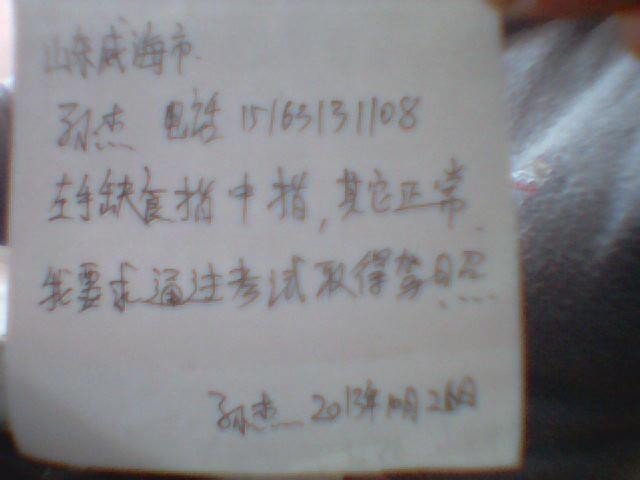 山东威海市.
孙杰 电话 15163131108
左手缺食指中指,其它正常.
我要求通过考试取得驾照
孙杰 2013年10月26日